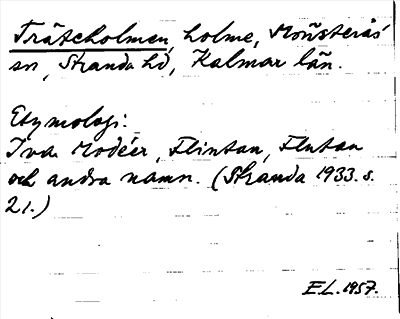 Trätcholmen, holme, Mönsterås
sn, Stranda hd, Kalmar län.
Etymologi:
Ivar Modéer, Flintan, Flutan
och andra namn. (Stranda 1933. s.
21.)
E.L. 1957.